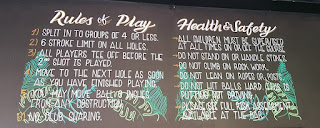 Rules of Play
1) SPLIT IN TO GROUPS OF 4 OR LESS.
2) 6 STROKE LIMIT ON ALL HOLES.
3) ALL PLAYERS TEE OFF BEFORE THE
2ND SHOT IS PLAYED.
4) MOVE TO THE NEXT HOLE AS SOON
AS YOU HAVE FINISHED PLAYING.
5) YOU MAY MOVE BALL 6 INCHES
FROM ANY OBSTRUCTION.
6) NO CLUB SHARING.
Health & Safety
-ALL CHILDREN MUST BE SUPERVISED
AT ALL TIMES ON OR OFF THE COURSE
-DO NOT STAND ON OR HANDLE STONES.
-DO NOT CLIMB ON ROCK WORK.
-DO NOT LEAN ON ROPES OR POSTS
-DO NOT HIT BALLS HARD. CLUB IS
PUTTER NOT DRIVING.
-PLEASE SEE FULL RISK ASSESSMENT
AVAILABLE AT THE BAR